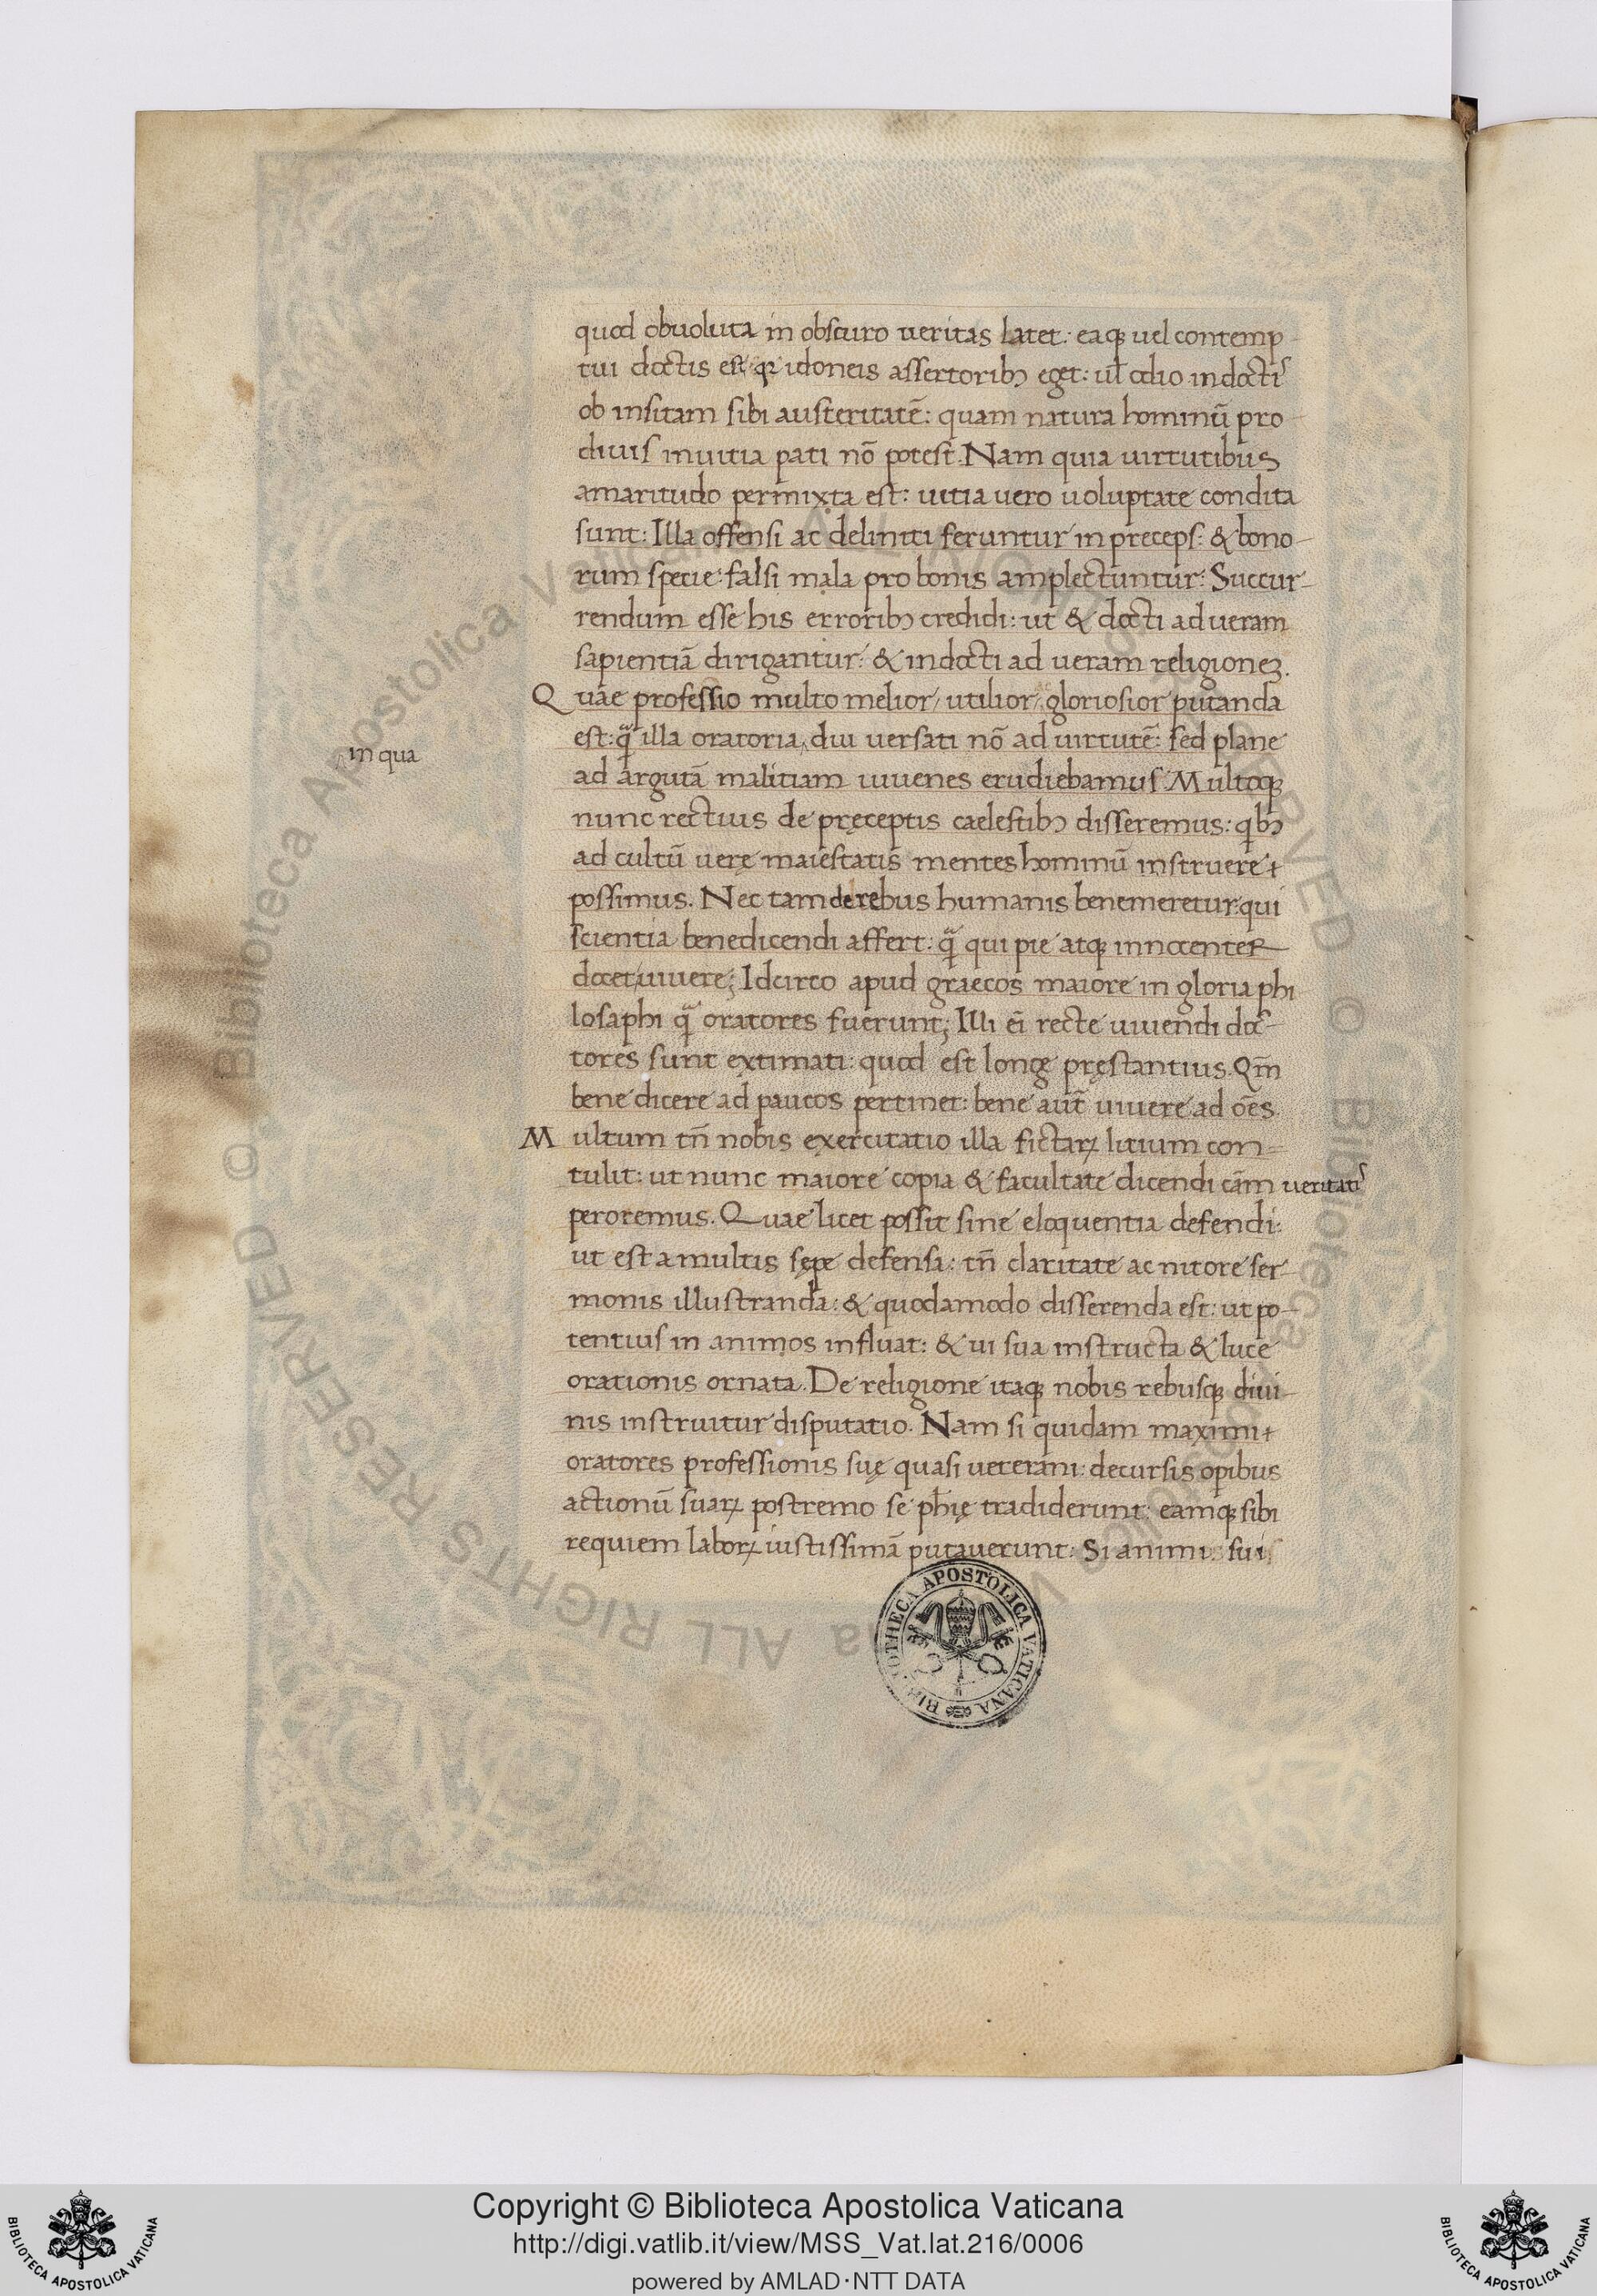 quod obuoluta in obscuro ueritas latet: eaq; uel contemp-
tui doctis est, qr idoneis assertorib; eget: ul̄ odio indoctis
ob insitam sibi austeritatē: quam natura hominū pro-
cliuis in uitia pati nō potest. Nam quia uirtutibus
amaritudo permixta est: uitia uero uoluptate condita
sunt: Illa offensi ac deliniti feruntur in preceps: & bono-
rum specie falsi mala pro bonis amplectuntur: Succur-
rendum esse his errorib; credidi: ut & docti ad ueram
sapientiā dirigantur: & indocti ad ueram religionem.
Quae professio multo melior, utilior, gloriosior putanda
est: q̄ illa oratoria, diu uersati nō ad uirtutē: sed plane
in qua
ad argutā malitiam iuuenes erudiebamus. Multoq;
nunc rectius de pręceptis caelestib; disseremus: qib;
ad cultū uerę maiestatis mentes hominū instruere
possimus. Nec tam de rebus humanis benemeretur: qui
scientiā benedicendi affert: q̄ qui pie atq; innocenter
docet uiuere; Idcirco apud graecos maiore in gloria phi
losaphi q̄ oratores fuerunt; Illi ei̅ recte uiuendi doc-
tores sunt extimati: quod est longe pręstantius. Qm̄
bene dicere ad paucos pertinet: bene aut̄ uiuere ad oēs.
Multum tn̄ nobis exercitatio illa fictaꝝ litium con-
tulit: ut nunc maiore copia & facultate dicendi cām ueritatis
peroremus. Quae licet possit sine eloquentia defendi:
ut est a multis sępe defensa: tn̄ claritate ac nitore ser-
monis illustranda: & quodamodo disserenda est: ut po-
tentius in animos influat: & ui sua instructa & luce
orationis ornata. De religione itaq; nobis rebusq; diui-
nis instruitur disputatio. Nam si quidam maximi
oratores professionis suę quasi ueterani: decursis opibus
actionū suaꝝ postremo se phię tradiderunt: eamq; sibi
requiem laboꝝ iustissimā putauerunt: Si animos suis
BIBLIOTHECA APOSTOLICA VATICANA
© Biblioteca Apostolica Vaticana ALL RIGHTS RESERVED
Copyright © Biblioteca Apostolica Vaticana
http://digi.vatlib.it/view/MSS_Vat.lat.216/0006
powered by AMLAD·NTT DATA
BIBLIOTECA APOSTOLICA VATICANA
BIBLIOTECA APOSTOLICA VATICANA